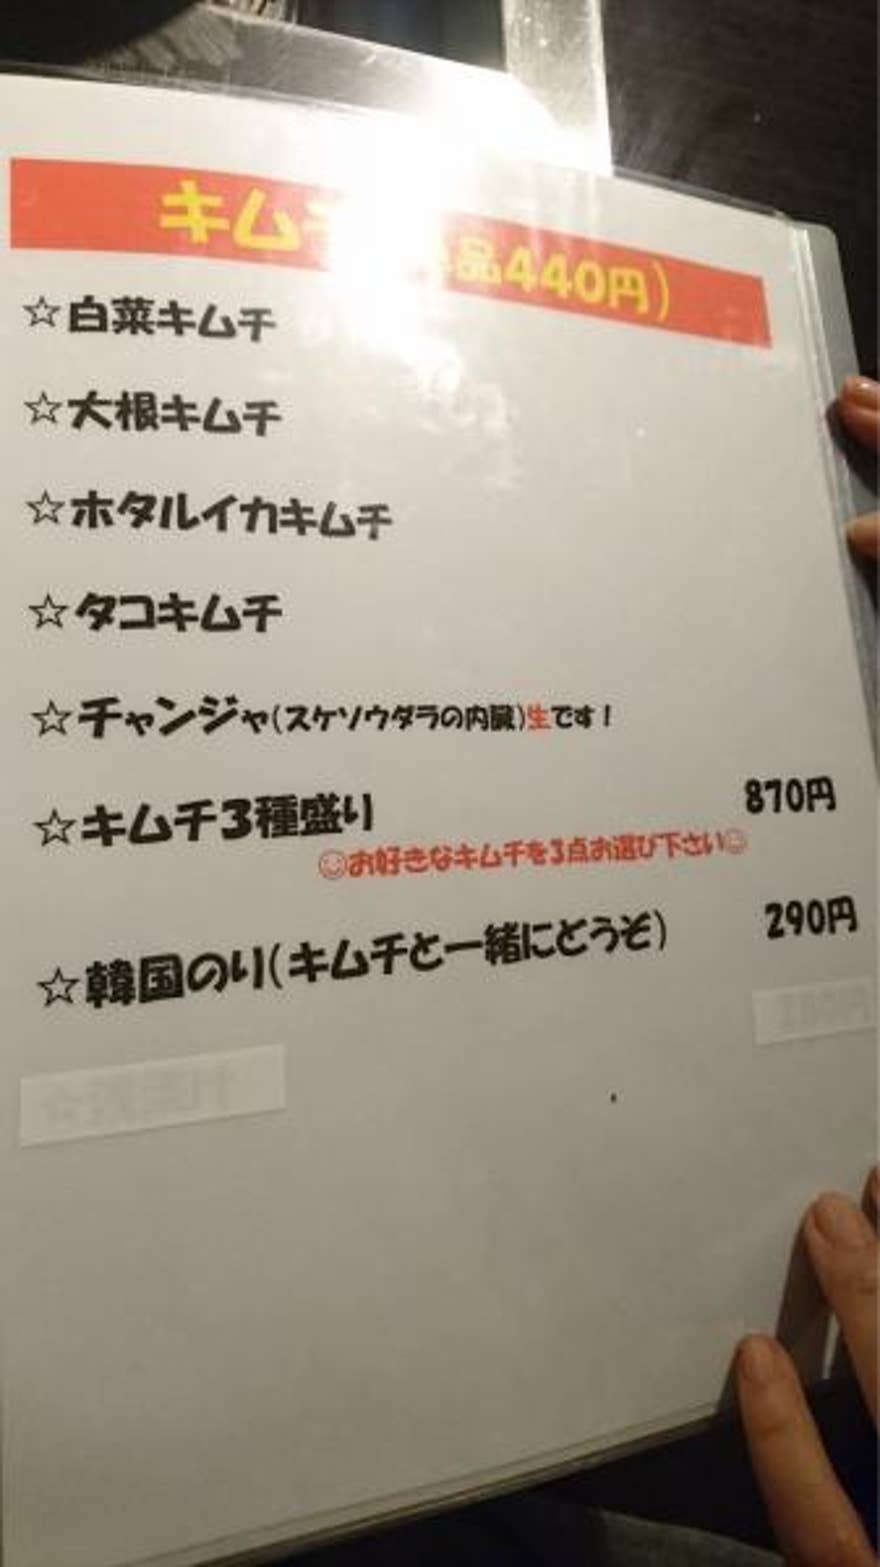 キム 品440円)
☆白菜キムチ
☆大根キムチ
☆ホタルイカキムチ
☆タコキムチ
☆チャンジャ(スケソウダラの内臓)生です!
☆キムチ3種盛り 870円
☺お好きなキムチを3点お選び下さい☺
☆韓国のり(キムチと一緒にどうぞ) 290円